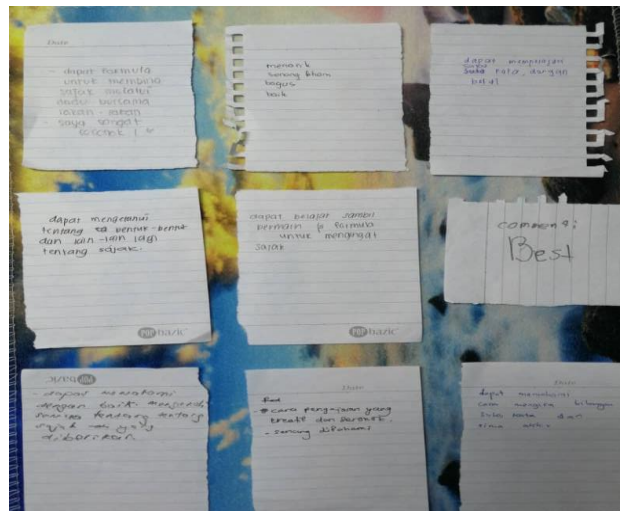 Date
- dapat formula
untuk membina
sajak melalui
bersama
rakan - rakan
- saya sangat
seronok !
menarik
senang faham
bagus
baik
dapat mempelajari
suku kata dengan
betul
dapat mengetahui
tentang bentuk-bentuk
dan lain-lain lagi
tentang sajak.
dapat belajar sambil
bermain formula
untuk mengingati
sajak
comment:
Best
POP bazic
POP bazic
POP bazic
- dapat memahami
dengan baik
tentang
sajak yang
diberikan
Date
cara pengajaran yang
kreatif dan seronok.
- senang difahami
Date
dapat mengetahui
cara mengira bilangan
suku kata dan
rima akhir.